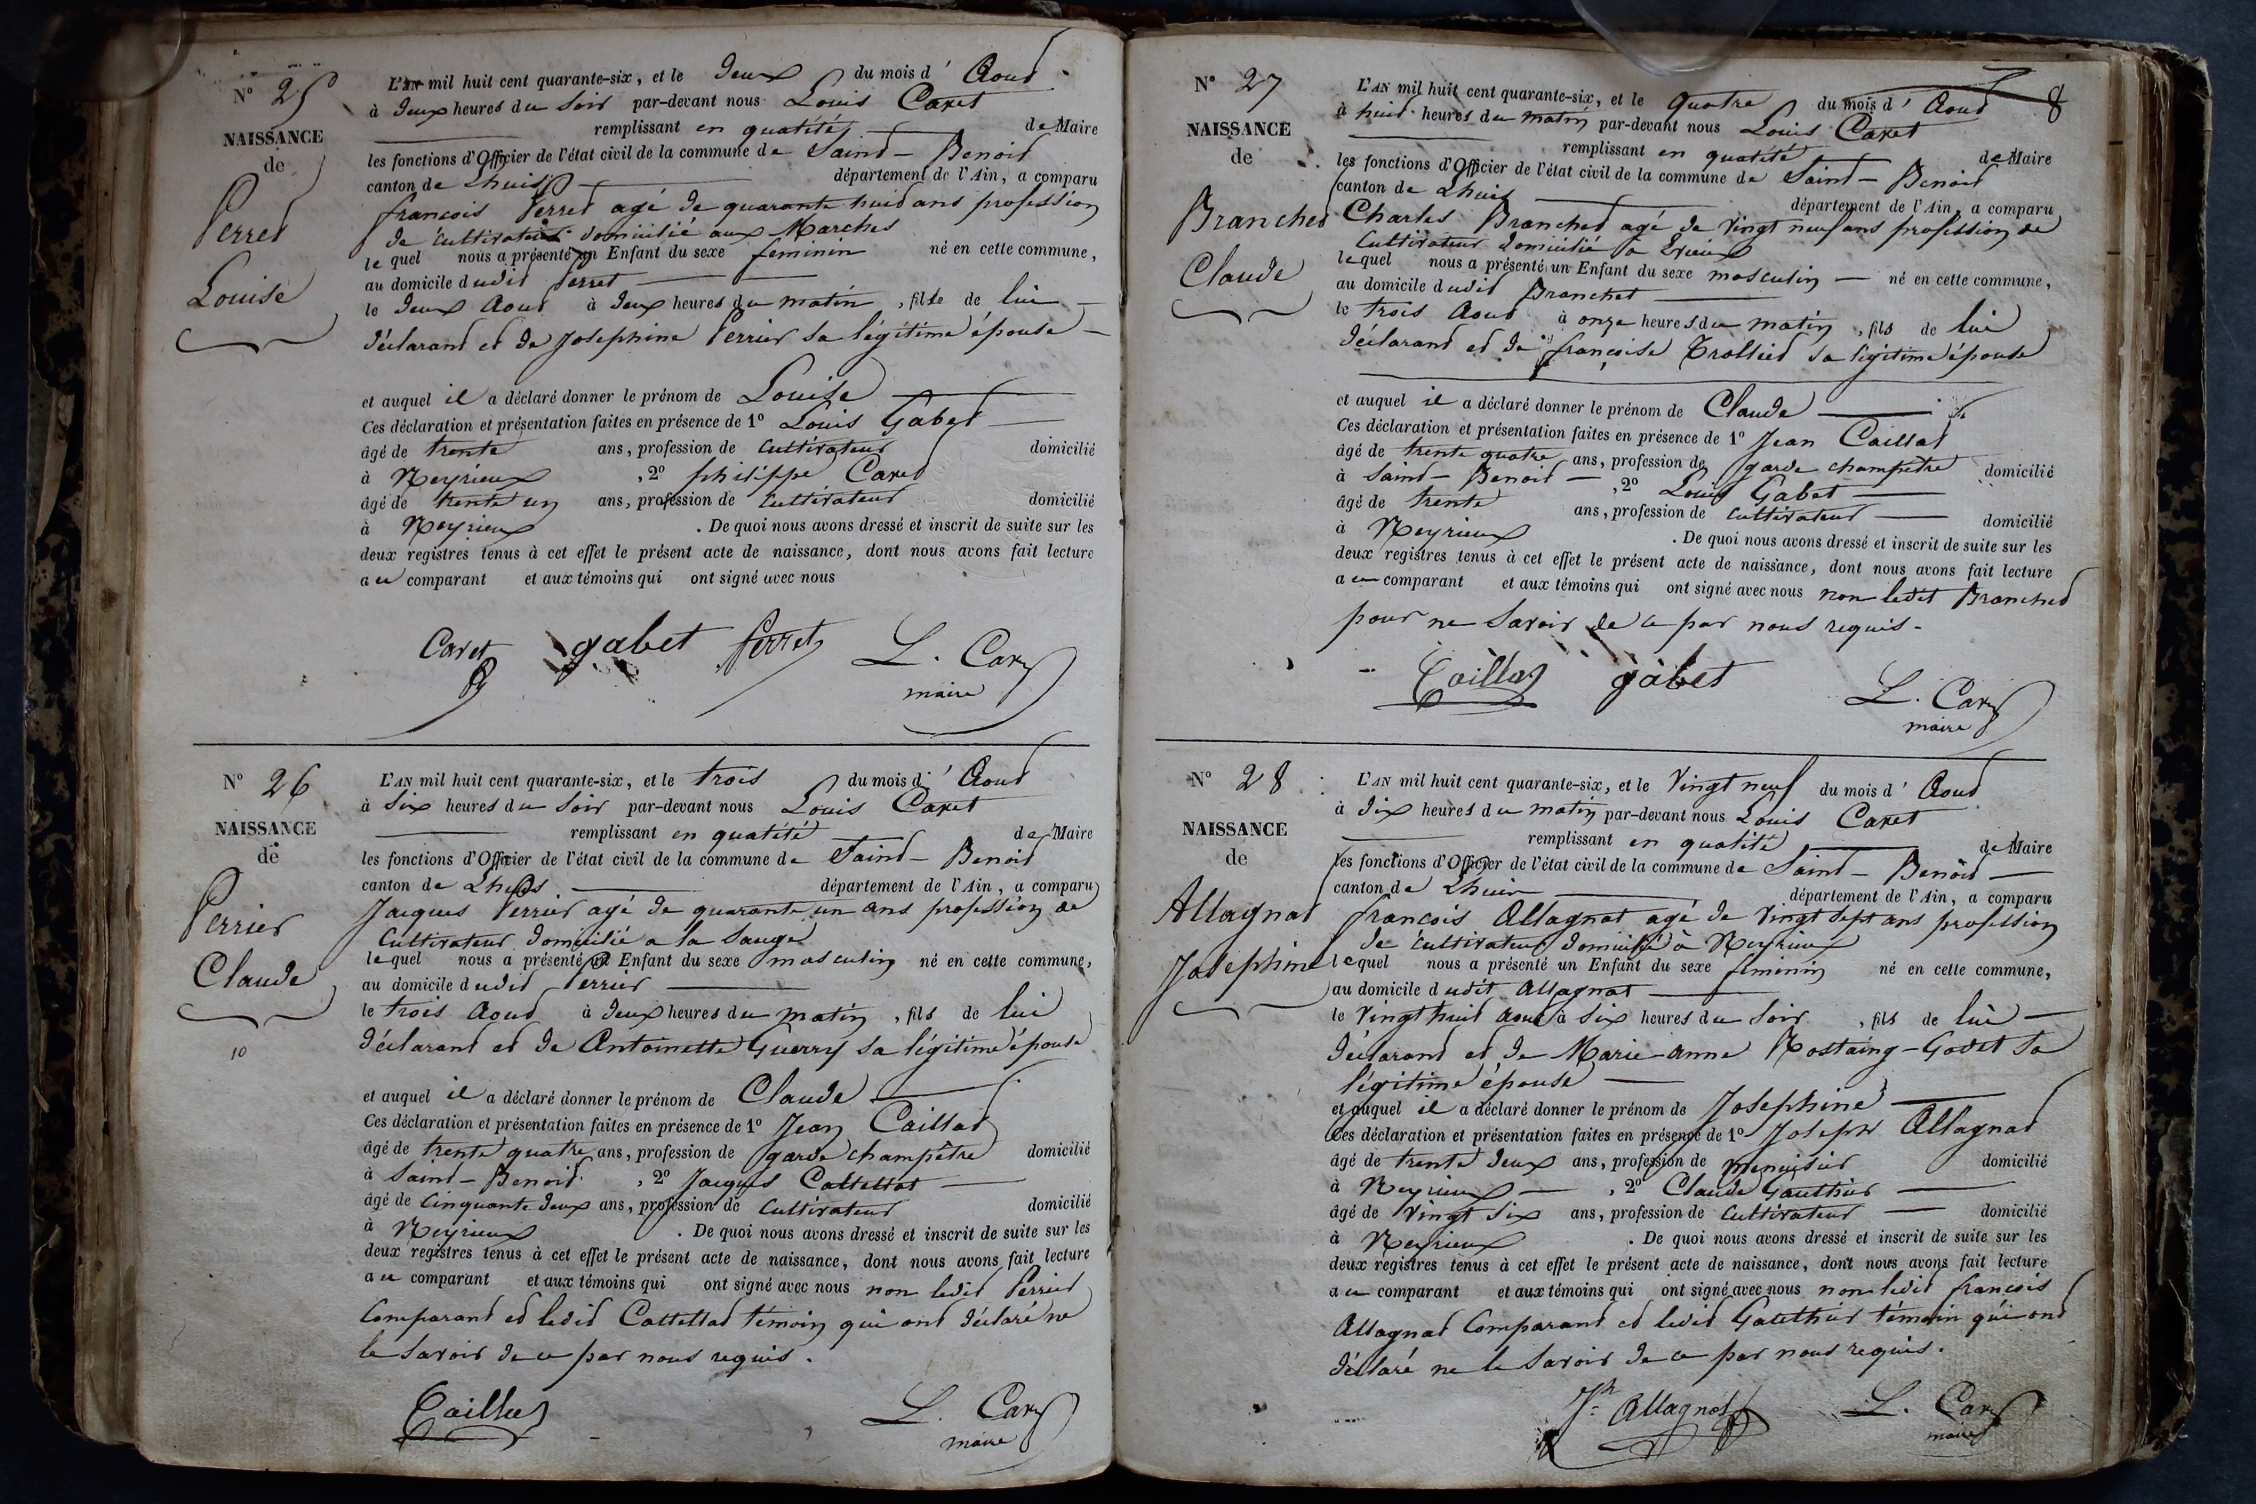 N° 25
NAISSANCE
de
Perret
Louise
L'AN mil huit cent quarante-six, et le deux du mois d' Aout
à deux heures du soir par-devant nous Louis Caret
remplissant en qualité de Maire
les fonctions d'Officier de l'état civil de la commune de Saint-Benoit
canton de Lhuis département de l'Ain, a comparu
francois Perret agé de quarante huit ans profession
de cultivateur domicilié aux Marches
lequel nous a présenté un Enfant du sexe feminin né en cette commune,
au domicile dudit Perret
le deux Aout à deux heures du matin, fille de lui
déclarant et de Josephine Perrier sa légitime épouse
et auquel il a déclaré donner le prénom de Louise
Ces déclaration et présentation faites en présence de 1° Louis Gabet
âgé de trente ans, profession de cultivateur domicilié
à Neyrieux, 2° philippe Caret
âgé de trente un ans, profession de cultivateur domicilié
à Neyrieux. De quoi nous avons dressé et inscrit de suite sur les
deux registres tenus à cet effet le présent acte de naissance, dont nous avons fait lecture
au comparant et aux témoins qui ont signé avec nous
Caret gabet perret L. Caret
maire
N° 26
NAISSANCE
de
Perrier
Claude
10
L'AN mil huit cent quarante-six, et le trois du mois d' Aout
à six heures du soir par-devant nous Louis Caret
remplissant en qualité de Maire
les fonctions d'Officier de l'état civil de la commune de Saint-Benoit
canton de Lhuis département de l'Ain, a comparu
Jacques Perrier agé de quarante un ans profession de
Cultivateur domicilié a la Sauge
lequel nous a présenté un Enfant du sexe masculin né en cette commune,
au domicile dudit Perrier
le trois Aout à deux heures du matin, fils de lui
déclarant et de Antoinette Guerry sa légitime épouse
et auquel il a déclaré donner le prénom de Claude
Ces déclaration et présentation faites en présence de 1° Jean Caillat
âgé de trente quatre ans, profession de garde champêtre domicilié
à Saint-Benoit, 2° Jacques Cattellat
âgé de cinquante deux ans, profession de cultivateur domicilié
à Neyrieux. De quoi nous avons dressé et inscrit de suite sur les
deux registres tenus à cet effet le présent acte de naissance, dont nous avons fait lecture
au comparant et aux témoins qui ont signé avec nous non ledit Perrier
Comparant et ledit Cattellat témoin qui ont déclaré ne
le savoir de ce par nous requis.
Caillat L. Caret
maire
8
N° 27
NAISSANCE
de
Branchet
Claude
L'AN mil huit cent quarante-six, et le quatre du mois d' Aout
à huit heures du matin par-devant nous Louis Caret
remplissant en qualité de Maire
les fonctions d'Officier de l'état civil de la commune de Saint-Benoit
canton de Lhuis département de l'Ain, a comparu
Charles Branchet agé de vingt neuf ans profession de
Cultivateur domicilié à
lequel nous a présenté un Enfant du sexe masculin né en cette commune,
au domicile dudit Branchet
le trois Aout à onze heures du matin, fils de lui
déclarant et de françoise Trolliet sa légitime épouse
et auquel il a déclaré donner le prénom de Claude
Ces déclaration et présentation faites en présence de 1° Jean Caillat
âgé de trente quatre ans, profession de garde champêtre domicilié
à Saint-Benoit, 2° Louis Gabet
âgé de trente ans, profession de cultivateur domicilié
à Neyrieux. De quoi nous avons dressé et inscrit de suite sur les
deux registres tenus à cet effet le présent acte de naissance, dont nous avons fait lecture
au comparant et aux témoins qui ont signé avec nous non ledit Branchet
pour ne savoir de ce par nous requis.
Caillat gabet L. Caret
maire
N° 28
NAISSANCE
de
Allagnat
Josephine
L'AN mil huit cent quarante-six, et le vingt neuf du mois d' Aout
à dix heures du matin par-devant nous Louis Caret
remplissant en qualité de Maire
les fonctions d'Officier de l'état civil de la commune de Saint-Benoit
canton de Lhuis département de l'Ain, a comparu
francois Allagnat agé de vingt sept ans profession
de cultivateur domicilié à Neyrieux
lequel nous a présenté un Enfant du sexe feminin né en cette commune,
au domicile dudit Allagnat
le vingt huit aout à six heures du soir, fils de lui
déclarant et de Marie-anne Rostaing-Godet sa
légitime épouse
et auquel il a déclaré donner le prénom de Josephine
Ces déclaration et présentation faites en présence de 1° Joseph Allagnat
âgé de trente deux ans, profession de menuisier domicilié
à Neyrieux, 2° Claude Gauthier
âgé de vingt six ans, profession de cultivateur domicilié
à Neyrieux. De quoi nous avons dressé et inscrit de suite sur les
deux registres tenus à cet effet le présent acte de naissance, dont nous avons fait lecture
au comparant et aux témoins qui ont signé avec nous non ledit francois
Allagnat Comparant et ledit Gauthier témoin qui ont
déclaré ne le savoir de ce par nous requis.
Jh Allagnat L. Caret
maire